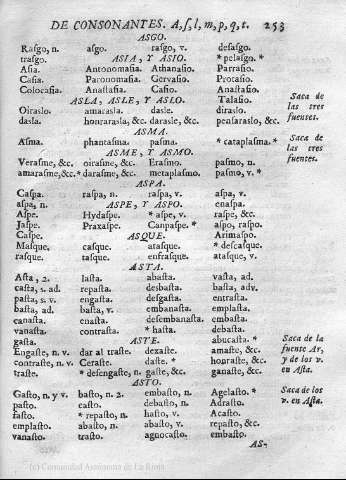 DE CONSONANTES. A, ſ, l, m, p, q, t. 253
ASGO.
Raſgo, n. aſgo. raſgo, v. deſaſgo.
traſgo. ASIA, Y ASIO. * pelaſgo. *
Aſia. Antonomaſia. Athanaſio. Parraſio.
Caſia. Paronomaſia. Gervaſio. Protaſio.
Colocaſia. Anaſtaſia. Caſio. Anaſtaſio.
ASLA, ASLE, Y ASLO. Talaſio.
Oiraslo. amarasla. darasle. diraslo.
dasla. honrarasla, &c. darasle, &c. penſaraslo, &c.
Saca de
las tres
fuentes.
ASMA.
Aſma. phantaſma. paſma. * cataplaſma. *
Saca de
las tres
fuentes.
ASME, Y ASMO.
Veraſme, &c. oiraſme, &c. Eraſmo. paſmo, n.
amaraſme, &c. * daraſme, &c. metaplaſmo. paſmo, v. *
ASPA.
Caſpa. raſpa, n. raſpa, v. aſpa, v.
aſpa, n. ASPE, Y ASPO. enaſpa.
Aſpe. Hydaſpe. * aſpe, v. raſpe, &c.
Jaſpe. Praxaſpe. Canpaſpe. * aſpo, raſpo.
Caſpe. ASQUE. Arimaſpo.
Maſque. caſque. ataſque. * deſcaſque.
raſque. taſque. enfraſque. ataſque, v.
ASTA.
Aſta, 2. laſta. abaſta. vaſta, ad.
caſta, s. ad. repaſta. desbaſta. baſta, adv.
paſta, s. v. engaſta. deſgaſta. entraſta.
baſta, ad. baſta, v. embaſta. emplaſta.
canaſta. enaſta. deſembaſta. encanaſta.
vanaſta. contraſta. * haſta. debaſta.
gaſta. ASTE. abucaſta. *
Engaſte, n. v. dar al traſte. dexaſte. amaſte, &c.
contraſte, n. v. Ceraſte. daſte. * honraſte, &c.
traſte. * deſengaſte, n. gaſte, &c. ganaſte, &c.
Saca de la
fuente Ar,
y de los v.
en Aſta.
ASTO.
Gaſto, n. y v. baſto, n. 2. embaſto, n. Agelaſto. *
paſto. caſto. debaſto, n. Adraſto.
faſto. * repaſto, n. haſto, v. Acaſto.
emplaſto. abaſto, n. abaſto, v. repaſto, &c.
vanaſto. traſto. agnocaſto. embaſto.
Saca de los
v. en Aſta.
AS-
(c) Comunidad Autónoma de La Rioja